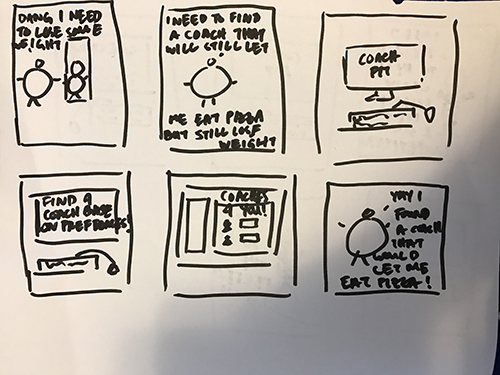 DANG I NEED
TO LOSE SOME
WEIGHT
I NEED TO FIND
A COACH THAT
WILL STILL LET
ME EAT PIZZA
BUT STILL LOSE
WEIGHT
COACH
FIT
FIND A
COACH BASE
ON PREFERENCES!
COACHES
4 YOU!
YAY I
FOUND
A COACH
THAT
WOULD
LET ME
EAT PIZZA!